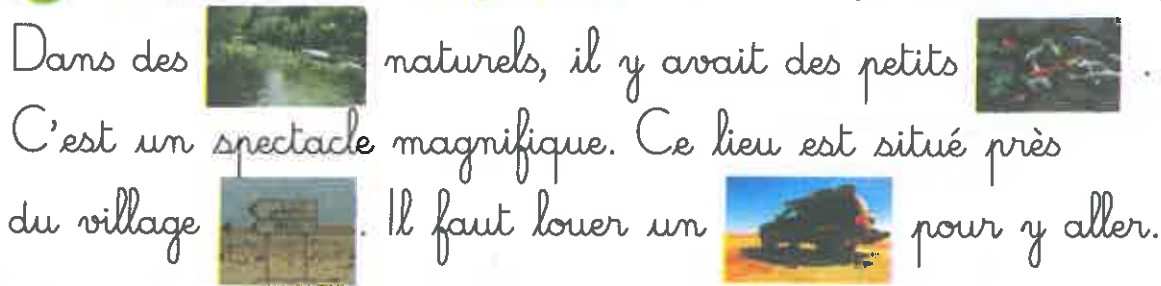 Dans des naturels, il y avait des petits .
C'est un spectacle magnifique. Ce lieu est situé près
du village . Il faut louer un pour y aller.